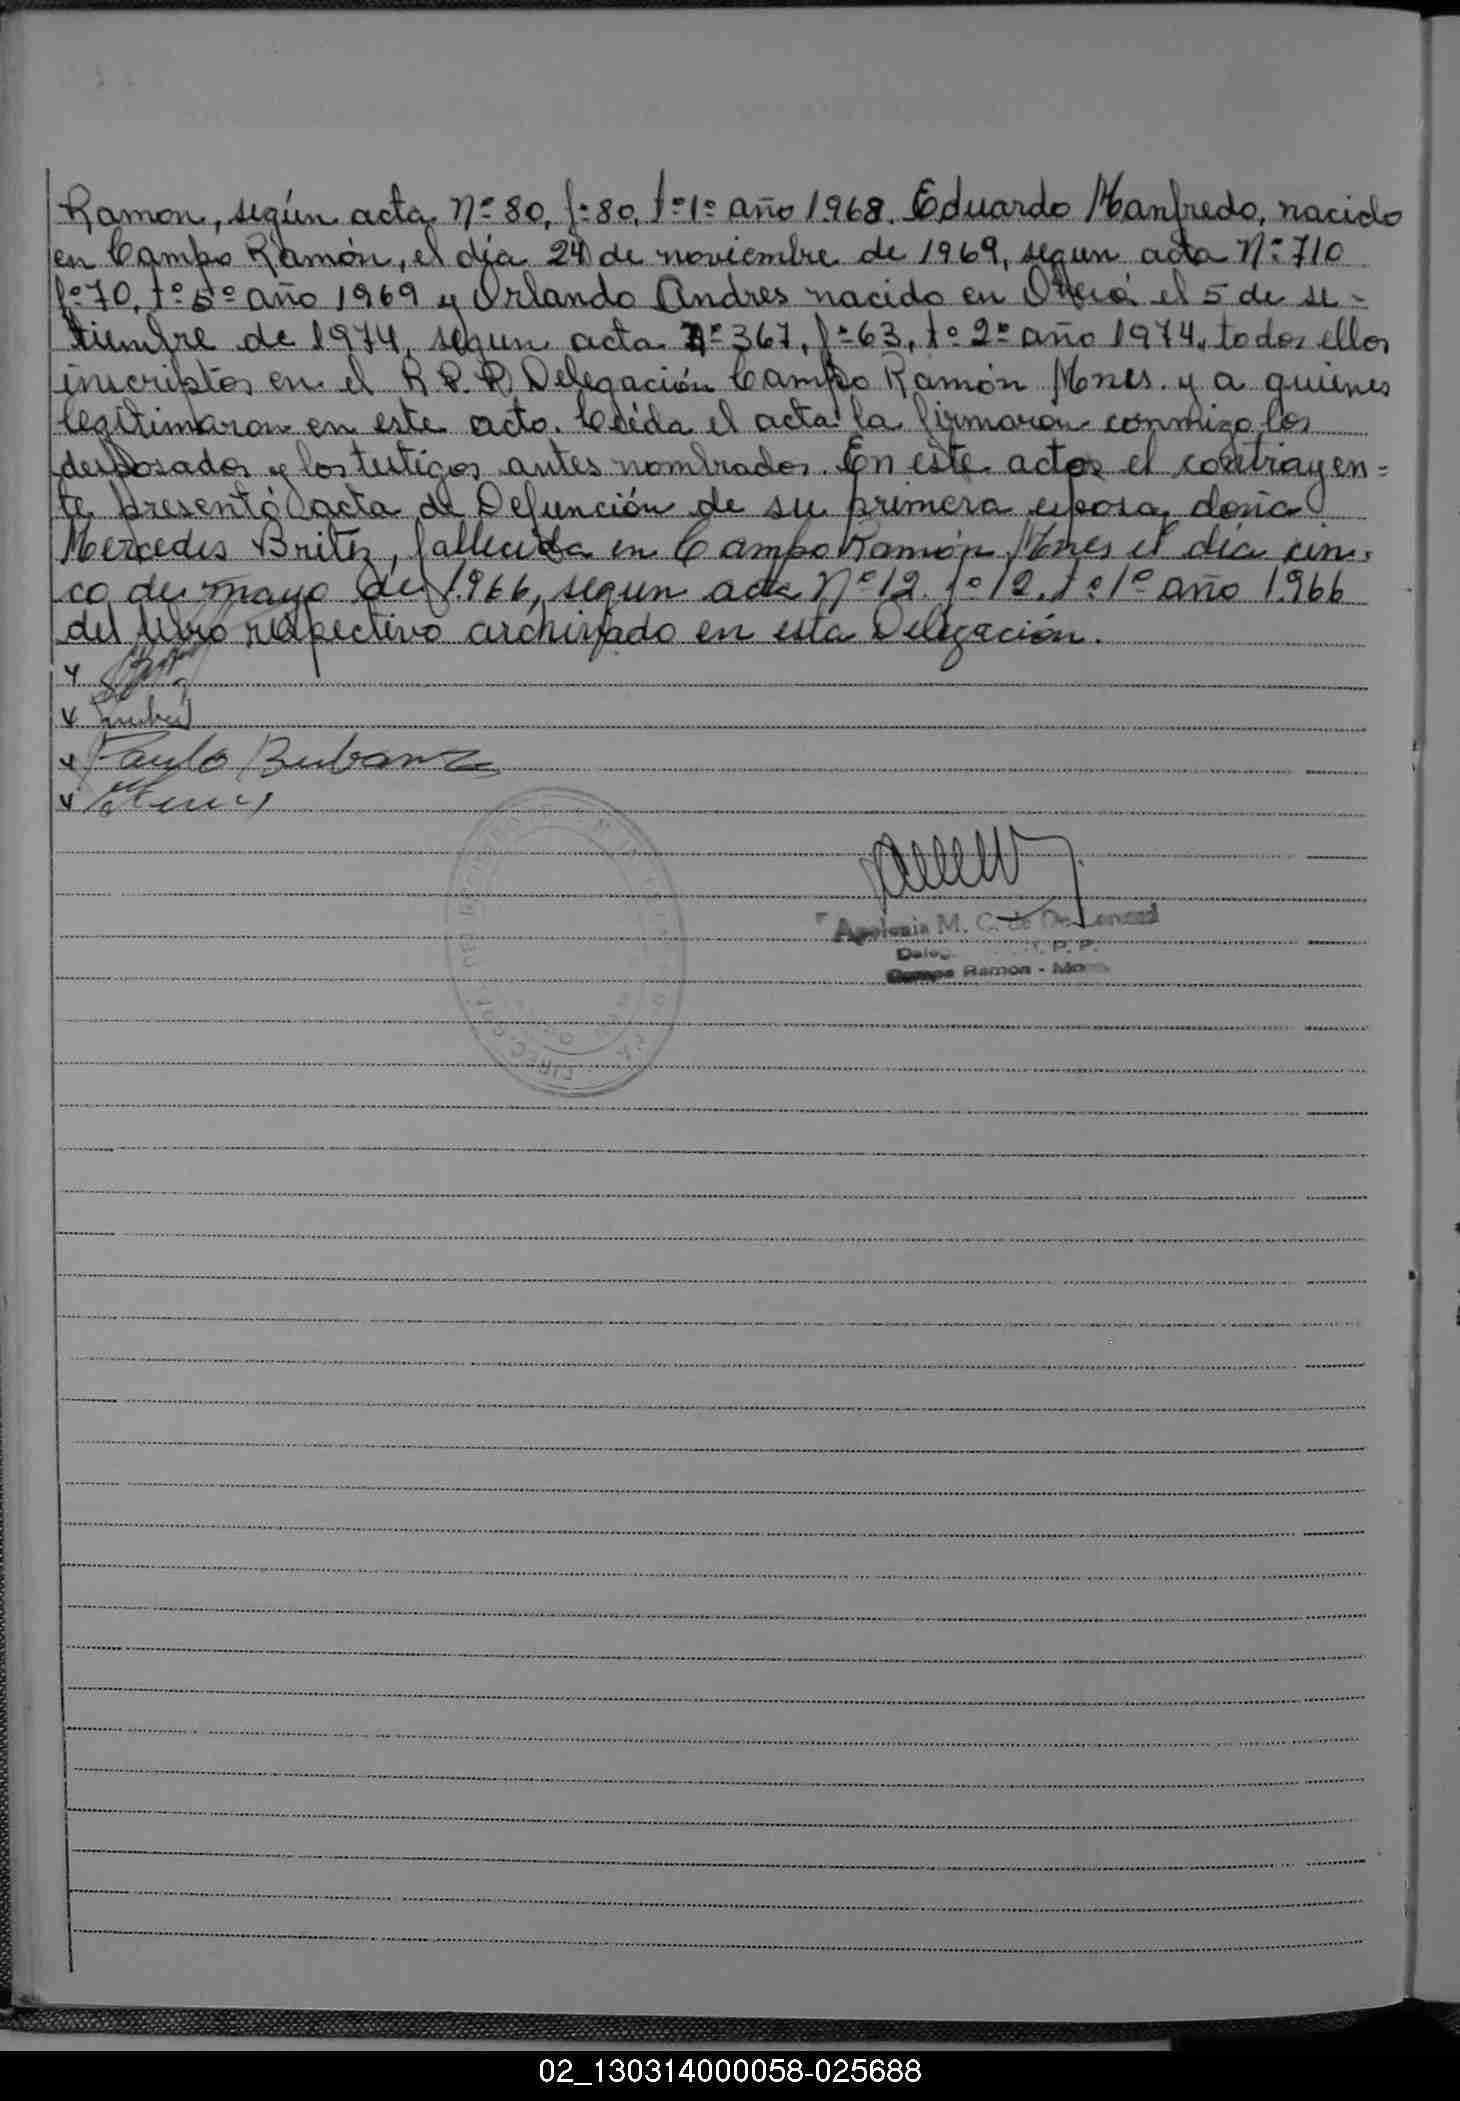 Ramon, según acta Nº 80, fº 80, tº 1º año 1968. Eduardo Manfredo, nacido
en Campo Ramón, el día 24 de noviembre de 1969, segun acta Nº 710
fº 70, tº 5º año 1969 y Orlando Andres nacido en Oberá el 5 de se-
tiembre de 1974, segun acta nº 367, fº 63, tº 2º año 1974, todos ellos
inscriptos en el R.P.P. Delegación Campo Ramón Mnes. y a quienes
legitimaron en este acto. Leída el acta la firmaron conmigo los
desposados y los testigos antes nombrados. En este acto el contrayen=
te presentó acta de Defunción de su primera esposa, doña
Mercedes Britez, fallecida en Campo Ramón Mnes el día cin-
co de mayo de 1.966, segun acta Nº 12 fº 12, tº 1º año 1.966
del libro respectivo archivado en esta Delegación.
Paulo
Apolonia M. C. de De
Deleg. P. P.
Campo Ramon - Mnes.
02_130314000058-025688